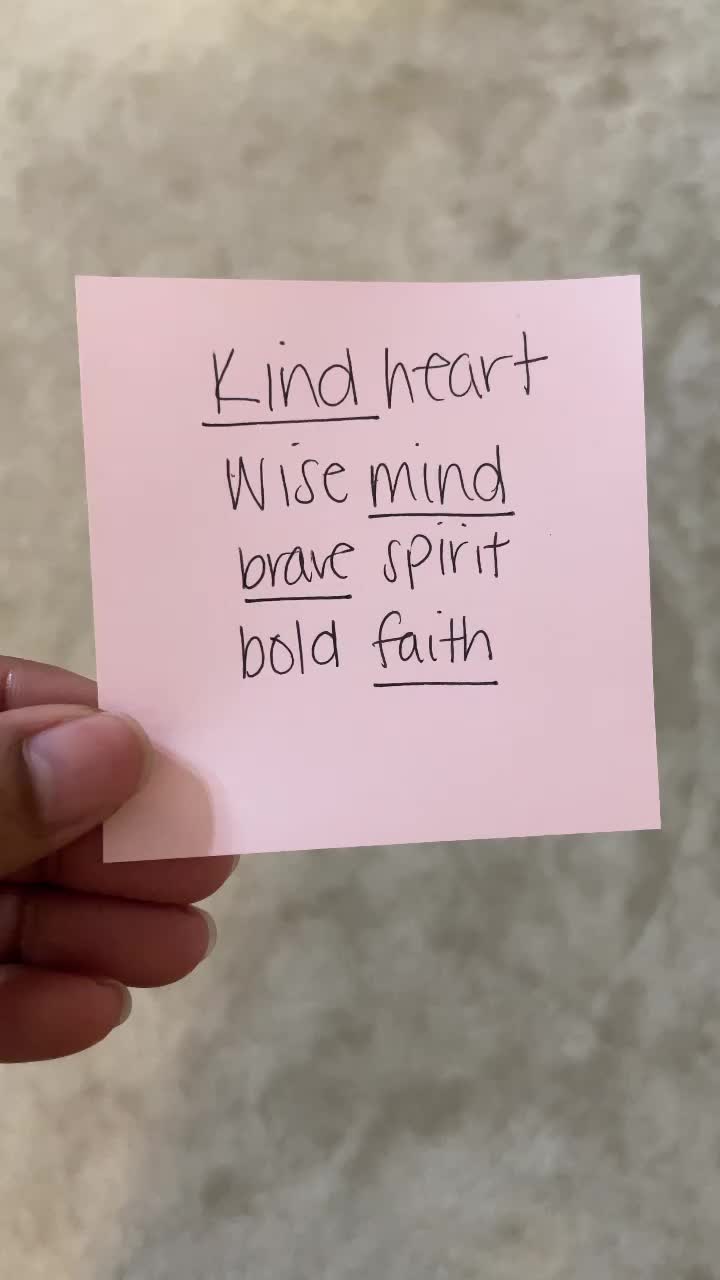 Kind heart
Wise mind
brave spirit
bold faith